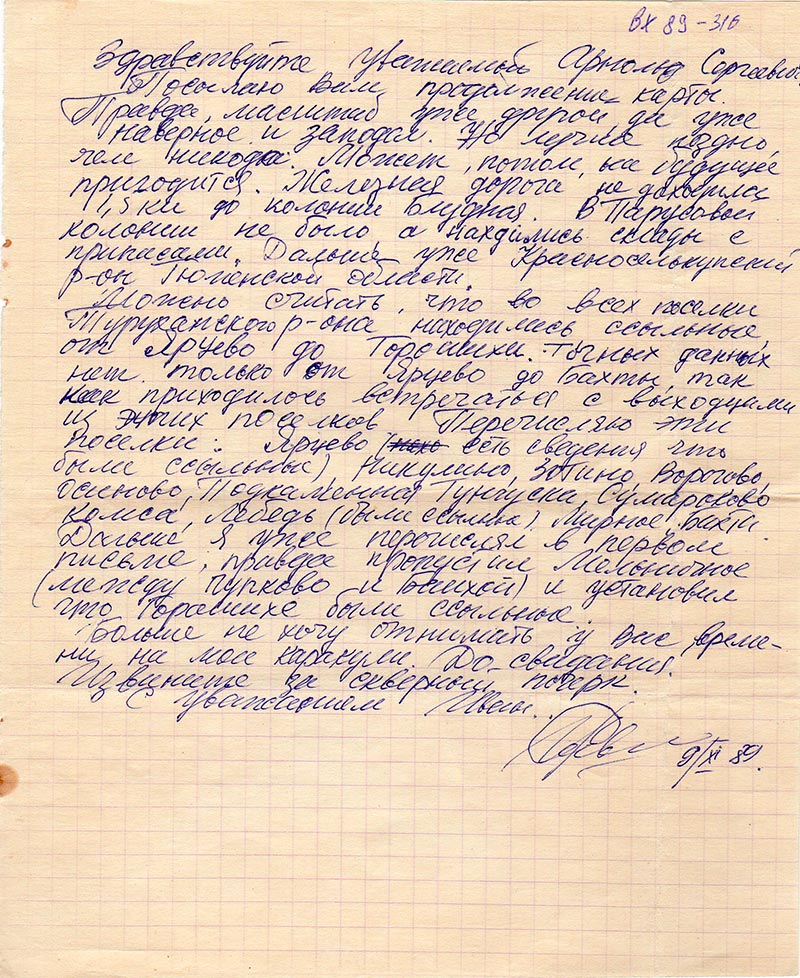 вх 89-316
Здравствуйте уважаемый Арнольд Сергеевич
Посылаю Вам продолжение карты.
Правда, масштаб уже другой да уже
наверное и запоздал. Но лучше поздно,
чем никогда. Может, потом, на будущее
пригодится. Железная дорога не доходила
1,5 км до колонии Блудная. В Парусовой
колонии не было а находились склады с
припасами. Дальше уже Красноселькупский
р-он Тюменской области.
Можно считать, что во всех поселки
Туруханского р-она находились ссыльные,
от Ярцево до Горошихи. Точных данных
нет только от Ярцево до Бахты, так
как приходилось встречаться с выходцами
из этих поселков. Перечисляю эти
поселки: Ярцево (есть сведения что
были ссыльные) Никулино, Зотино, Ворогово,
Осиново, Подкаменная Тунгуска, Сумароково,
Комса, Лебедь (были ссыльные) Мирное, Бахта.
Дальше я уже перечислял в первом
письме, правда пропустил Мельничное
(между Пупково и Баихой) и установил
что Горошихе были ссыльные.
Больше не хочу отнимать у Вас време-
ни на мои каракули. До-свидания.
Извините за скверный почерк.
С уважением Иван.
9/XI 89.